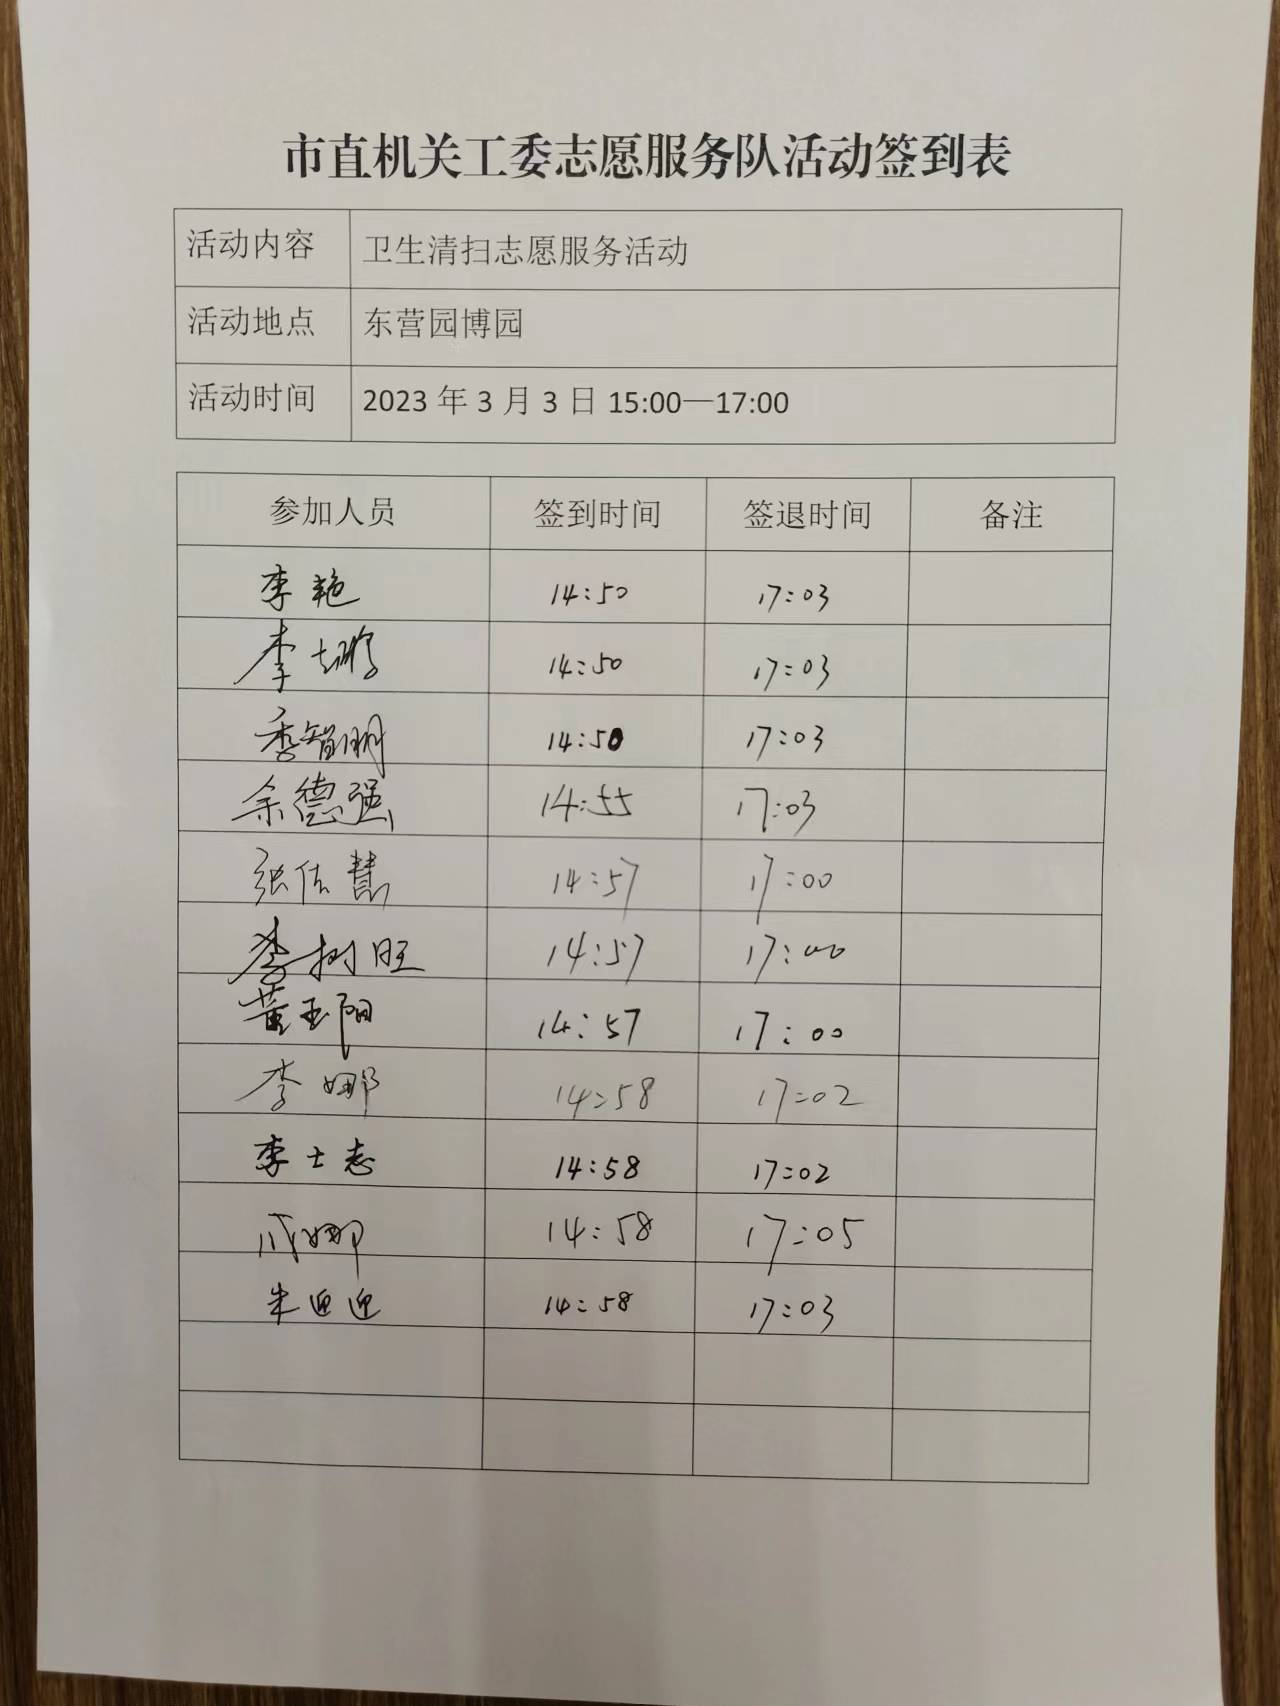 市直机关工委志愿服务队活动签到表
活动内容 卫生清扫志愿服务活动
活动地点 东营园博园
活动时间 2023年3月3日 15:00—17:00
参加人员 签到时间 签退时间 备注
李艳 14:50 17:03
李 14:50 17:03
季智明 14:50 17:03
余德强 14:55 17:03
张佶慧 14:57 17:00
李树旺 14:57 17:00
黄玉阳 14:57 17:00
李娜 14:58 17:02
李士志 14:58 17:02
成娜 14:58 17:05
朱迎迎 14:58 17:03